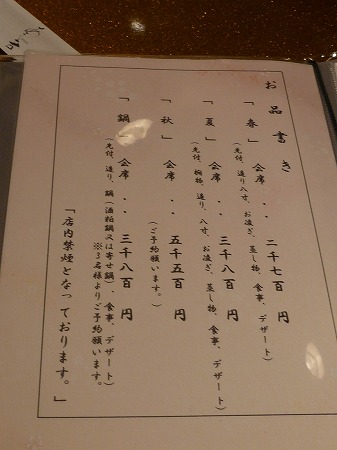 お品書き
「春」会席・・二千七百円
(先付、造り八寸、お凌ぎ、蒸し物、食事、デザート)
「夏」会席・・三千八百円
(先付、椀物、造り、八寸、お凌ぎ、蒸し物、食事、デザート)
「秋」会席・・五千五百円
(ご予約願います。)
「鍋」会席・・三千八百円
(先付、造り、鍋(酒粕鍋又は寄せ鍋)、食事、デザート)
※3名様よりご予約願います。
「店内禁煙となっております。」